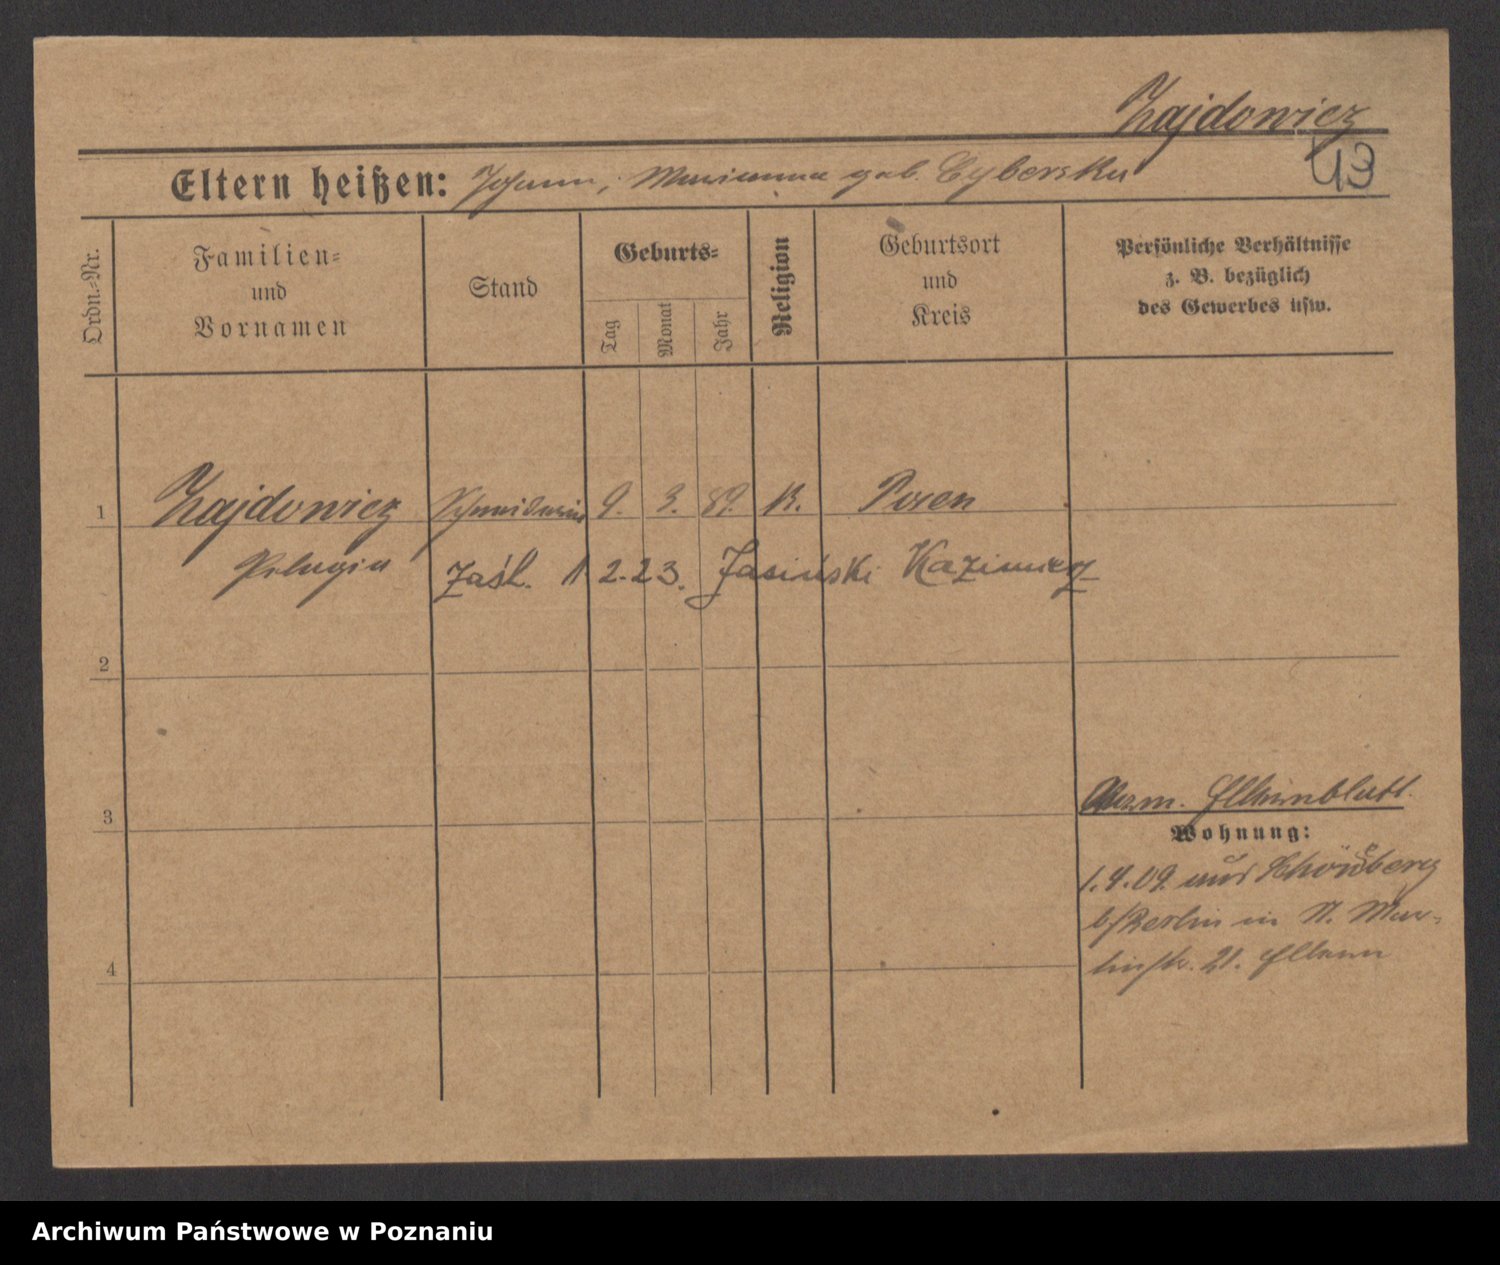 Zajdowicz
43
Eltern heißen: Johann, Marianna geb. Cyberska
Ordn.-Nr.
Familien-
und
Vornamen
Stand
Geburts-
Tag
Monat
Jahr
Religion
Geburtsort
und
Kreis
Persönliche Verhältnisse
z. B. bezüglich
des Gewerbes usw.
1 Zajdowicz Schneiderin 9. 3. 89. K. Posen
Pelagia zaśl. 1 2. 23. Jasiński Kazimierz
2
3
Wohnung:
1.4.09. aus Schöneberg
b/Berlin in St. Mar-
tinstr. 21.
4
Archiwum Państwowe w Poznaniu